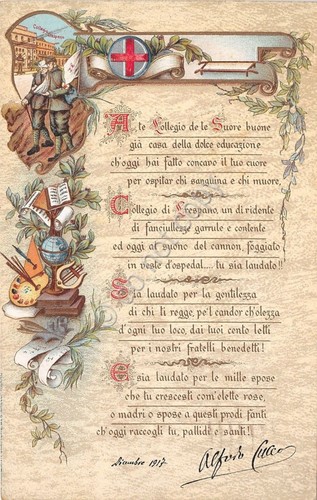 A te Collegio de le Suore buone
già casa della dolce educazione
ch'oggi hai fatto concavo il tuo cuore
per ospitar chi sanguina e chi muore,
Collegio di Crespano, un dì ridente
di fanciullezze garrule e contente
ed oggi al suono del cannon, foggiato
in veste d'ospedal.... tu sia laudato!!
Sia laudato per la gentilezza
di chi ti regge, pe'l candor ch'olezza
d'ogni tuo loco, dai tuoi cento letti
per i nostri fratelli benedetti!
E sia laudato per le mille spose
che tu crescesti com'elette rose,
o madri o spose a questi prodi fanti
ch'oggi raccogli tu, pallidi e santi!
dicembre 1917.
Alfredo Cucco